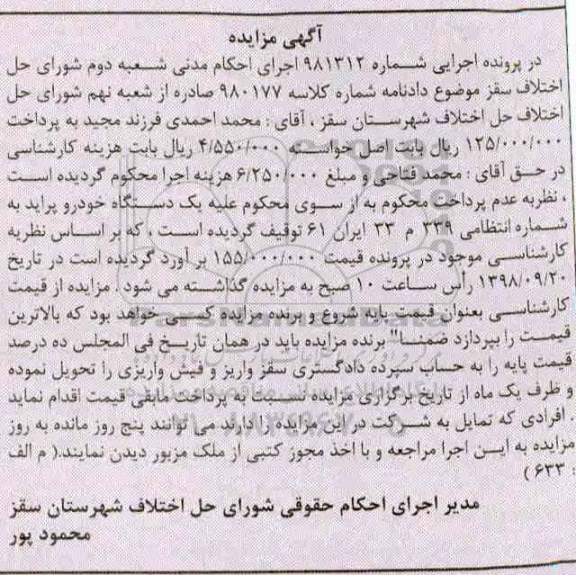 آگهی مزایده
در پرونده اجرایی شماره ۹۸۱۳۱۲ اجرای احکام مدنی شعبه دوم شورای حل
اختلاف سقز موضوع دادنامه شماره کلاسه ۹۸۰۱۷۷ صادره از شعبه نهم شورای حل
اختلاف حل اختلاف شهرستان سقز ، آقای : محمد احمدی فرزند مجید به پرداخت
۱۲۵/۰۰۰/۰۰۰ ریال بابت اصل خواسته ۴/۵۵۰/۰۰۰ ریال بابت هزینه کارشناسی
در حق آقای : محمد فتاحی و مبلغ ۶/۲۵۰/۰۰۰ هزینه اجرا محکوم گردیده است
، نظربه عدم پرداخت محکوم به از سوی محکوم علیه یک دستگاه خودرو پراید به
شماره انتظامی ۳۳۹ م ۳۳ ایران ۶۱ توقیف گردیده است ، که بر اساس نظریه
کارشناسی موجود در پرونده قیمت ۱۵۵/۰۰۰/۰۰۰ بر آورد گردیده است در تاریخ
۱۳۹۸/۰۹/۲۰ رأس ساعت ۱۰ صبح به مزایده گذاشته می شود . مزایده از قیمت
کارشناسی بعنوان قیمت پایه شروع و برنده مزایده کسی خواهد بود که بالاترین
قیمت را بپردازد ضمنا" برنده مزایده باید در همان تاریخ فی المجلس ده درصد
قیمت پایه را به حساب سپرده دادگستری سقز واریز و فیش واریزی را تحویل نموده
و ظرف یک ماه از تاریخ برگزاری مزایده نسبت به پرداخت مابقی قیمت اقدام نماید
. افرادی که تمایل به شرکت در این مزایده را دارند می توانند پنج روز مانده به روز
مزایده به این اجرا مراجعه و با اخذ مجوز کتبی از ملک مزبور دیدن نمایند.( م الف
: ۶۳۳ )
مدیر اجرای احکام حقوقی شورای حل اختلاف شهرستان سقز
محمود پور
ParsNamadData